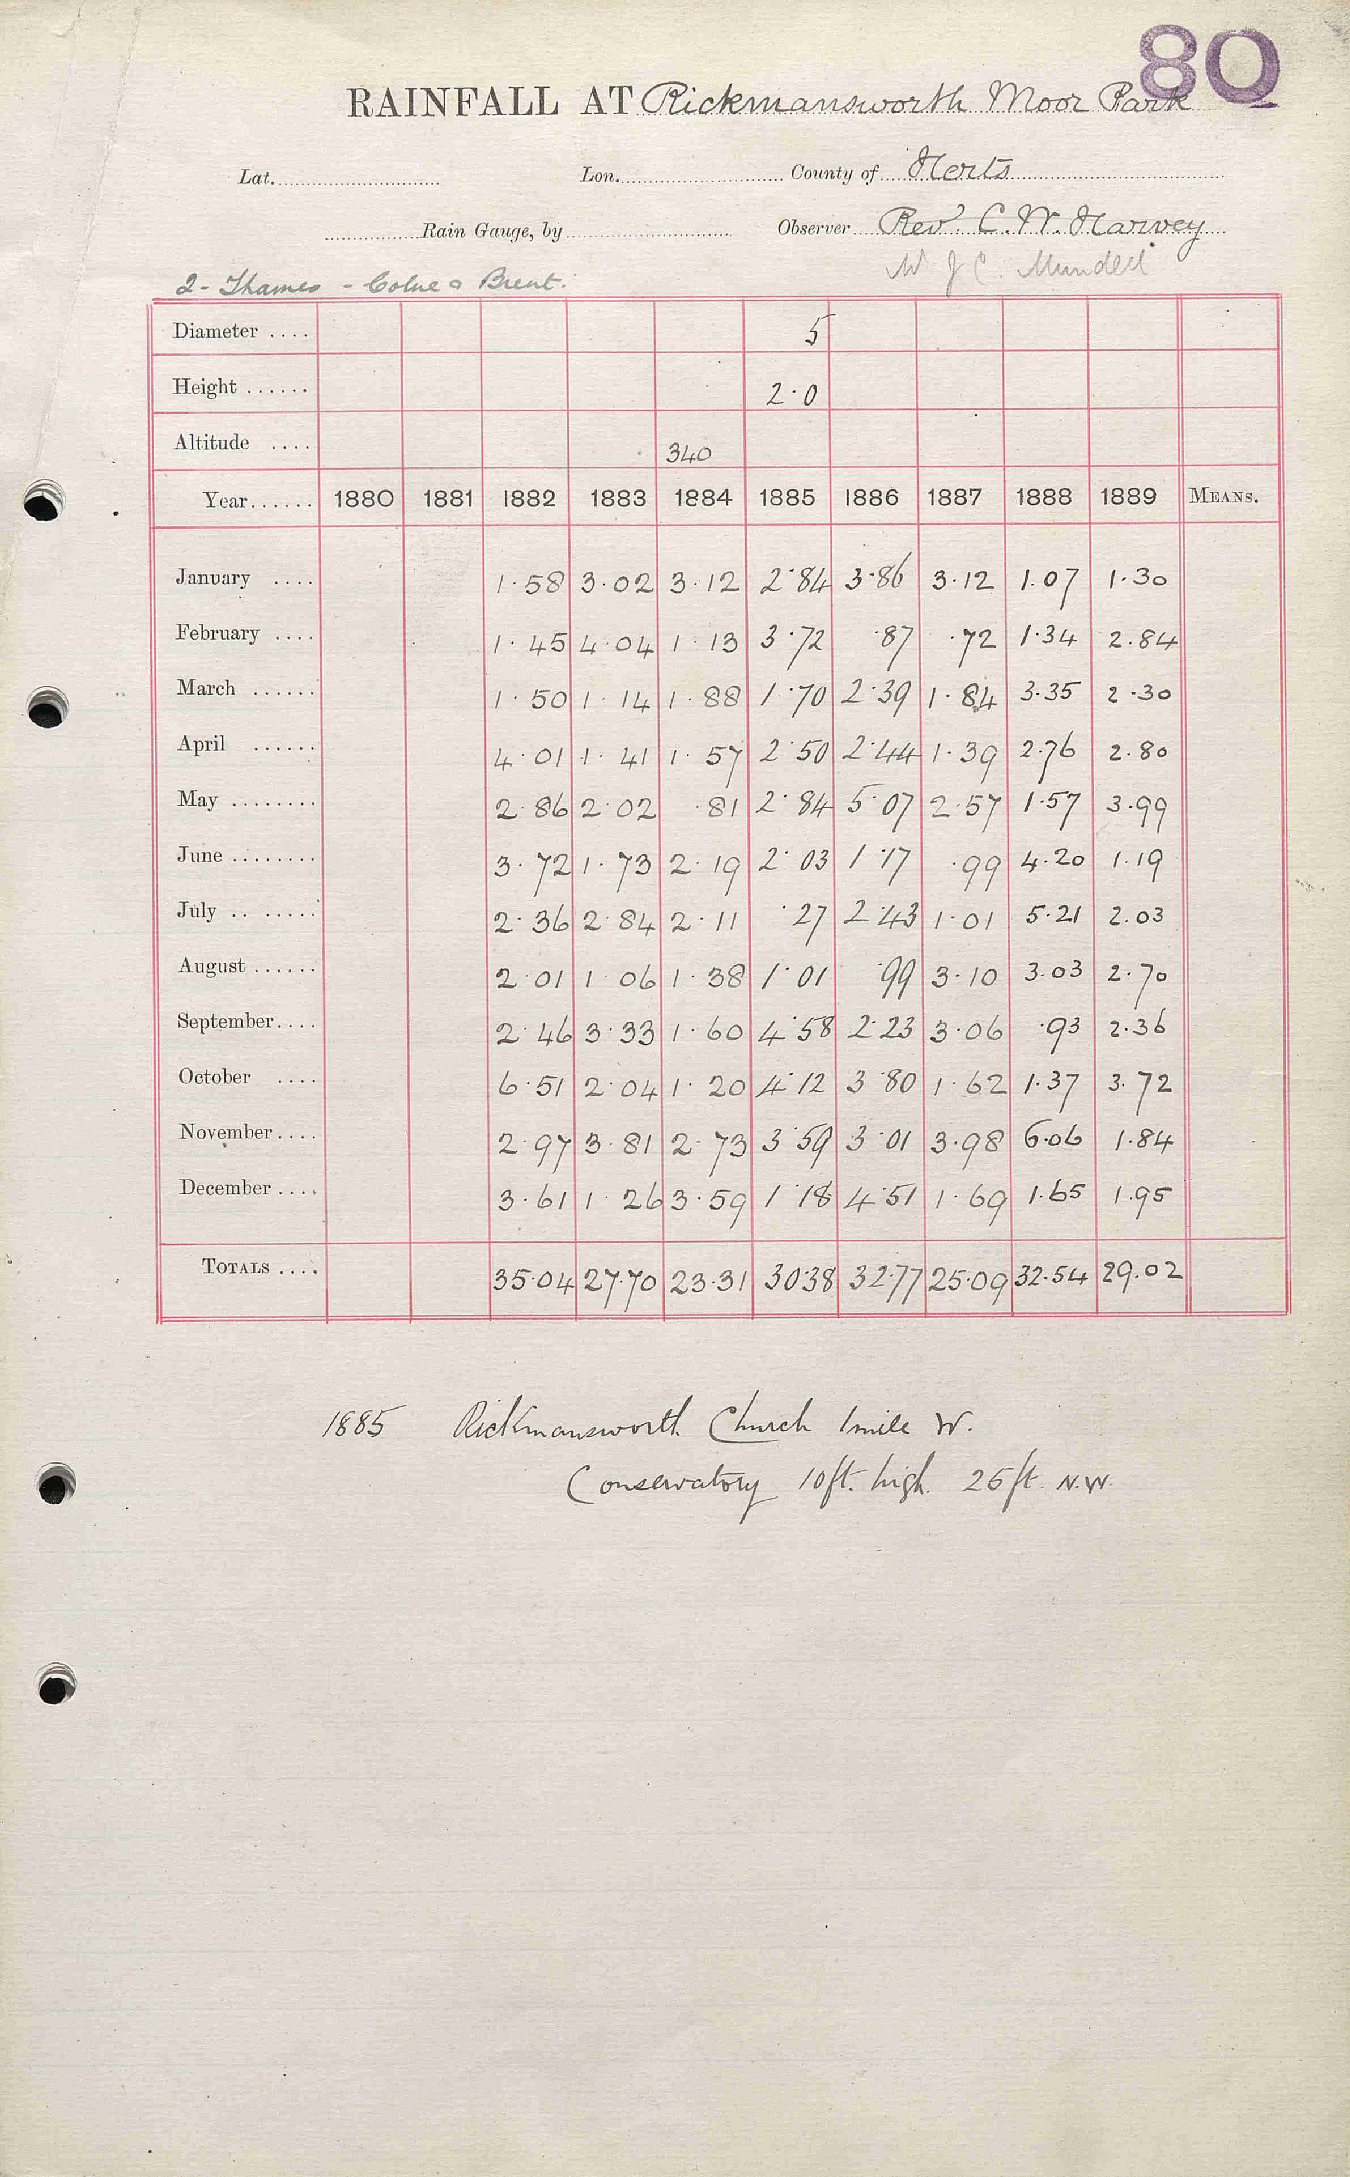 80
RAINFALL AT Rickmansworth Moor Park
Lat. Lon. County of Herts
Rain Gauge, by Observer Rev. C. W. Harvey
2 - Thames - Colne & Brent. Mr J C. Mundell
Diameter .... 5
Height ...... 2.0
Altitude .... 340
Year ...... 1880 1881 1882 1883 1884 1885 1886 1887 1888 1889 MEANS.
January .... 1.58 3.02 3.12 2.84 3.86 3.12 1.07 1.30
February .... 1.45 4.04 1.13 3.72 .87 .72 1.34 2.84
March ...... 1.50 1.14 1.88 1.70 2.39 1.84 3.35 2.30
April ...... 4.01 1.41 1.57 2.50 2.44 1.39 2.76 2.80
May ........ 2.86 2.02 .81 2.84 5.07 2.57 1.57 3.99
June ........ 3.72 1.73 2.19 2.03 1.17 .99 4.20 1.19
July .. ..... 2.36 2.84 2.11 .27 2.43 1.01 5.21 2.03
August ...... 2.01 1.06 1.38 1.01 .99 3.10 3.03 2.70
September.... 2.46 3.33 1.60 4.58 2.23 3.06 .93 2.36
October .... 6.51 2.04 1.20 4.12 3.80 1.62 1.37 3.72
November.... 2.97 3.81 2.73 3.59 3.01 3.98 6.06 1.84
December.... 3.61 1.26 3.59 1.18 4.51 1.69 1.65 1.95
TOTALS .... 35.04 27.70 23.31 30.38 32.77 25.09 32.54 29.02
1885 Rickmansworth Church 1 mile W.
Conservatory 10ft. high 25ft. N.W.